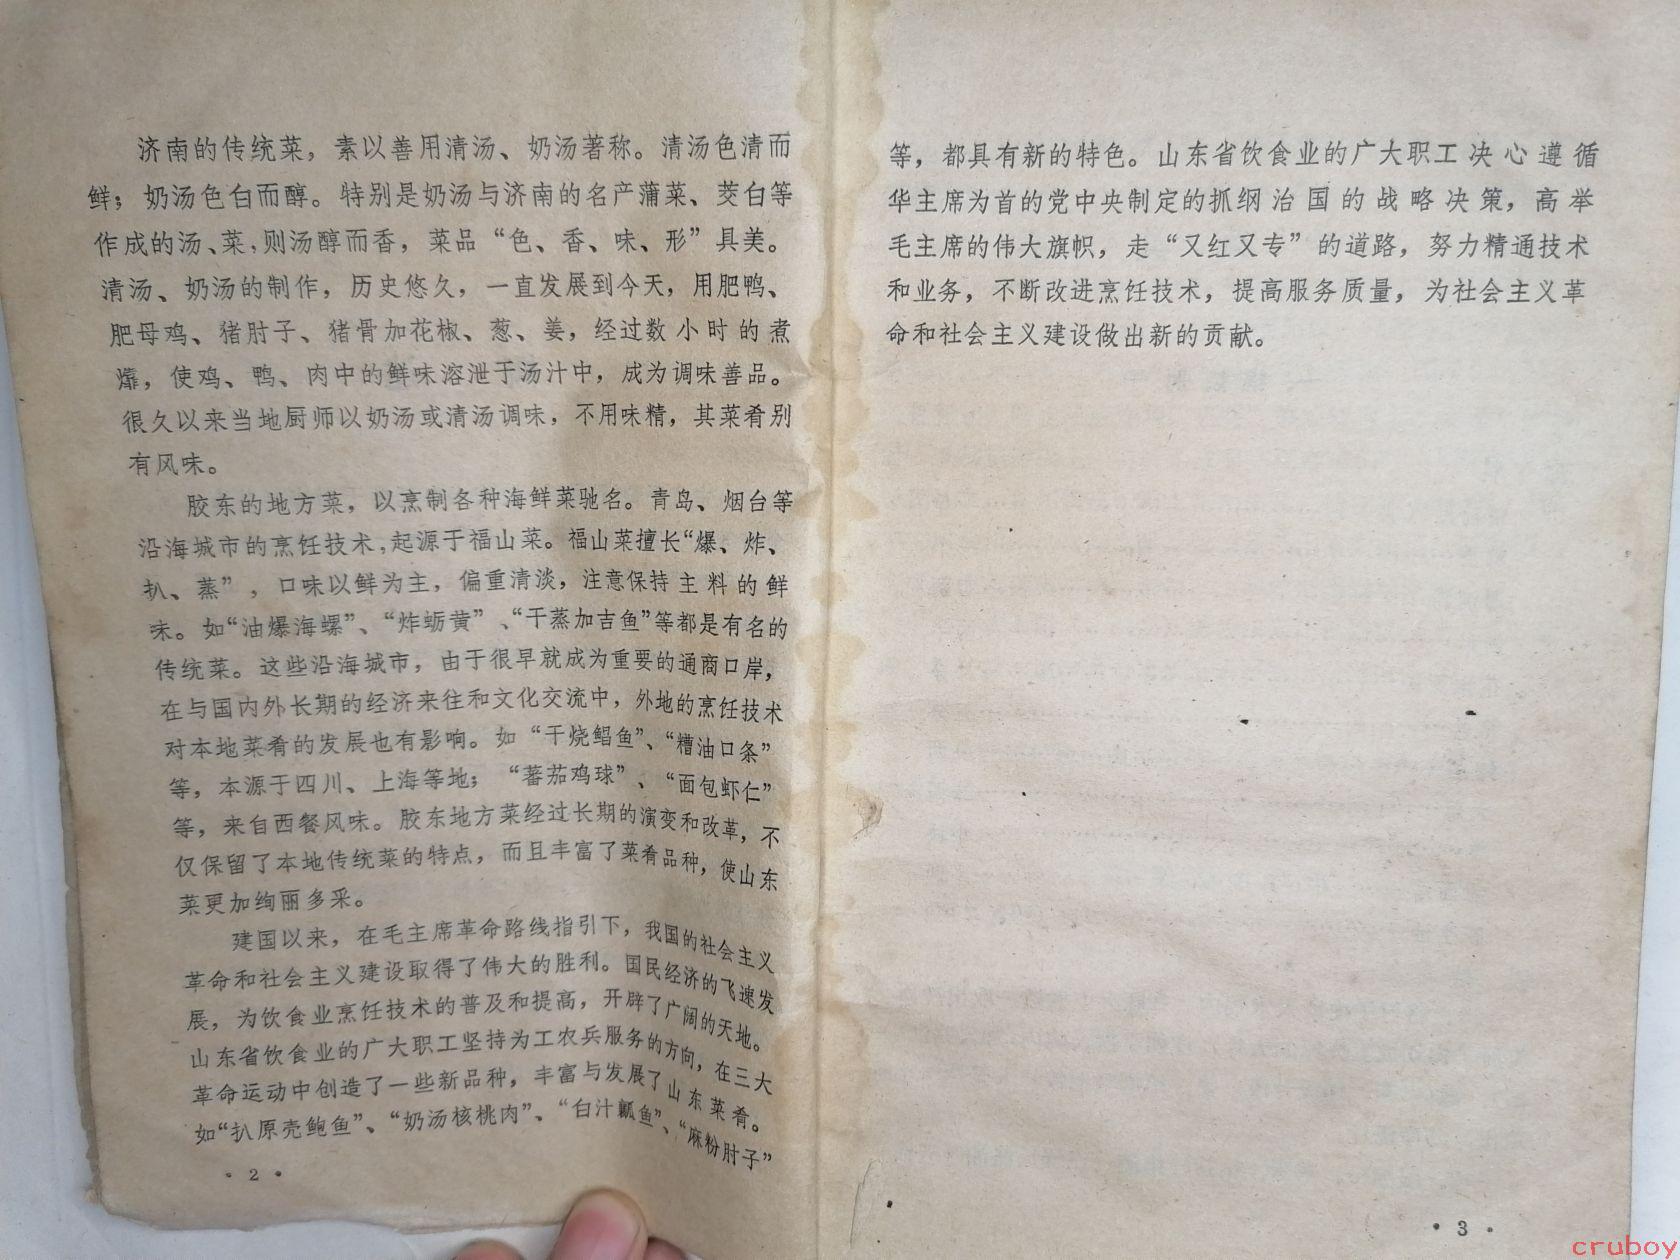 济南的传统菜，素以善用清汤、奶汤著称。清汤色清而
鲜；奶汤色白而醇。特别是奶汤与济南的名产蒲菜、茭白等
作成的汤、菜，则汤醇而香，菜品“色、香、味、形”具美。
清汤、奶汤的制作，历史悠久，一直发展到今天，用肥鸭、
肥母鸡、猪肘子、猪骨加花椒、葱、姜，经过数小时的煮
㸆，使鸡、鸭、肉中的鲜味溶泄于汤汁中，成为调味善品。
很久以来当地厨师以奶汤或清汤调味，不用味精，其菜肴别
有风味。
胶东的地方菜，以烹制各种海鲜菜驰名。青岛、烟台等
沿海城市的烹饪技术，起源于福山菜。福山菜擅长“爆、炸、
扒、蒸”，口味以鲜为主，偏重清淡，注意保持主料的鲜
味。如“油爆海螺”、“炸蛎黄”、“干蒸加吉鱼”等都是有名的
传统菜。这些沿海城市，由于很早就成为重要的通商口岸，
在与国内外长期的经济来往和文化交流中，外地的烹饪技术
对本地菜肴的发展也有影响。如“干烧鲳鱼”、“糟油口条”
等，本源于四川、上海等地；“蕃茄鸡球”、“面包虾仁”
等，来自西餐风味。胶东地方菜经过长期的演变和改革，不
仅保留了本地传统菜的特点，而且丰富了菜肴品种，使山东
菜更加绚丽多采。
建国以来，在毛主席革命路线指引下，我国的社会主义
革命和社会主义建设取得了伟大的胜利。国民经济的飞速发
展，为饮食业烹饪技术的普及和提高，开辟了广阔的天地。
山东省饮食业的广大职工坚持为工农兵服务的方向，在三大
革命运动中创造了一些新品种，丰富与发展了山东菜肴。
如“扒原壳鲍鱼”、“奶汤核桃肉”、“白汁瓤鱼”、“麻粉肘子”
·2·
等，都具有新的特色。山东省饮食业的广大职工决心遵循
华主席为首的党中央制定的抓纲治国的战略决策，高举
毛主席的伟大旗帜，走“又红又专”的道路，努力精通技术
和业务，不断改进烹饪技术，提高服务质量，为社会主义革
命和社会主义建设做出新的贡献。
·3·
cruboy